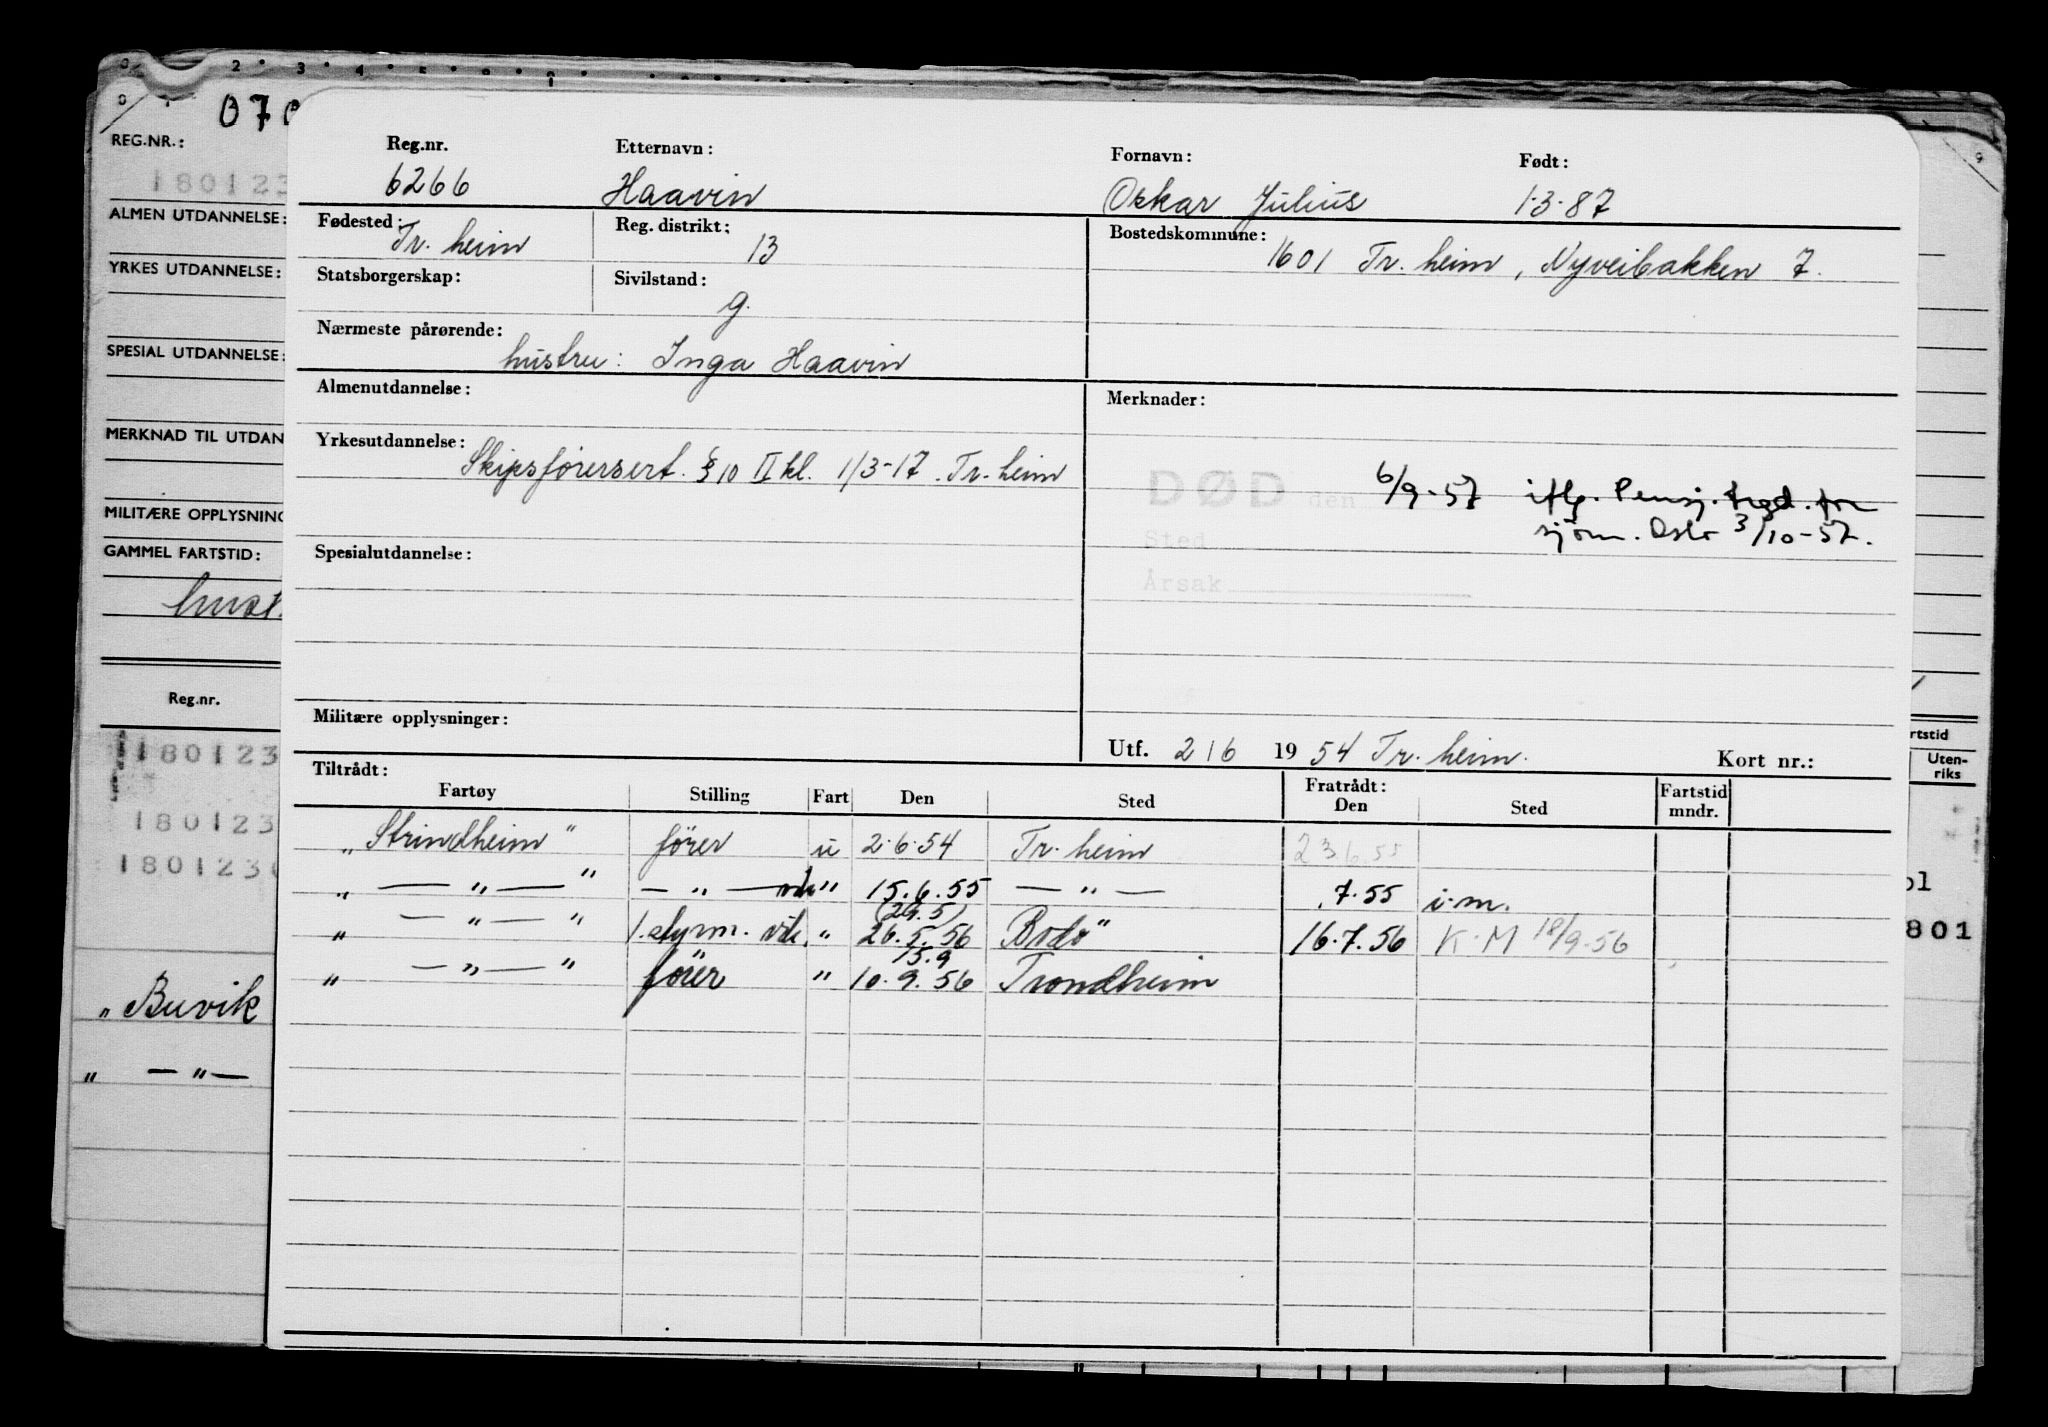 070
REG.NR.:
180123
ALMEN UTDANNELSE:
YRKES UTDANNELSE:
SPESIAL UTDANNELSE:
MERKNAD TIL UTDAN
MILITÆRE OPPLYSNING
GAMMEL FARTSTID:
Reg.nr.
180123
180123
180123
„ Buvik
„ — „ —
Reg.nr. Etternavn: Fornavn: Født:
6266 Haavin Oskar Julius 1.3.87
Fødested: Tr. heim Reg. distrikt: 13 Bostedskommune: 1601 Tr. heim, Nyveibakken 7.
Statsborgerskap: Sivilstand: g.
Nærmeste pårørende:
hustru: Inga Haavin
Almenutdannelse: Merknader:
Yrkesutdannelse: Skipsførersert. § 10 II kl. 1/3-17. Tr. heim
DØD den 6/9-57 iflg. Pensj. trgd. for
Sted sjøm. Oslo 3/10-57.
Årsak
Spesialutdannelse:
Militære opplysninger:
Utf. 2/6 1954 Tr. heim. Kort nr.:
Tiltrådt: Fratrådt:
Fartøy Stilling Fart Den Sted Den Sted Fartstid mndr.
„Strindheim" fører u 2.6.54 Tr. heim 23.6.55
„ — „ — " — „ — vik " 15.6.55 — „ — .7.55 i.m.
(29.5)
„ — „ — " 1. styrm. vik. " 26.5.56 Bodø 16.7.56 K.M 18/9-56
15.9
„ — „ — " fører " 10.9.56 Trondheim
rtstid
Uten-
riks
ol
801